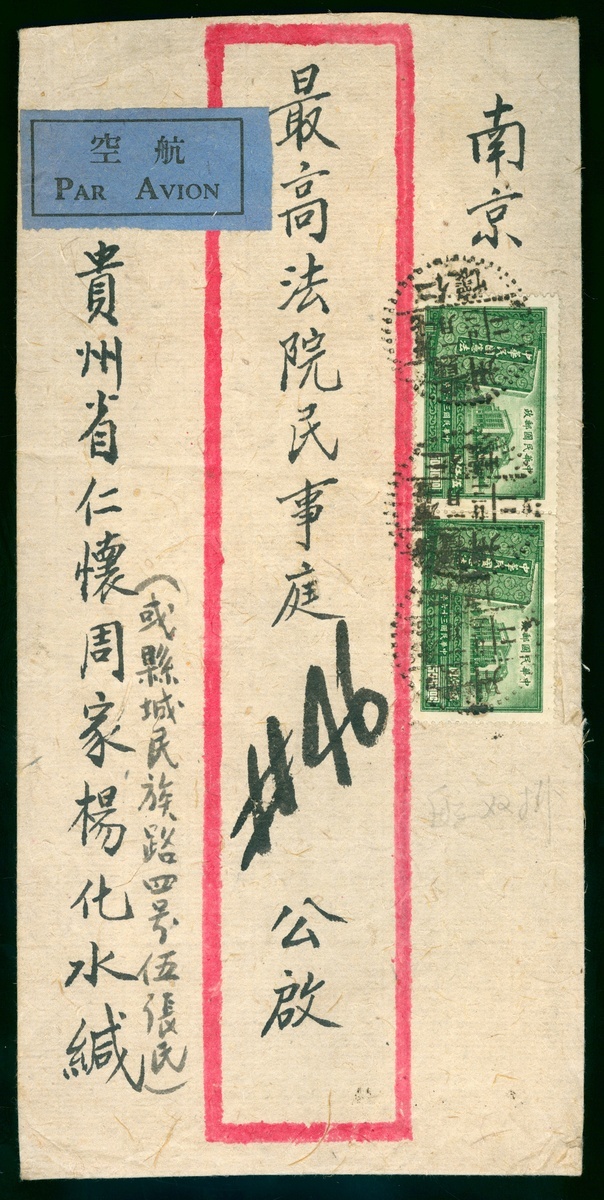 南京
最高法院民事庭 公啟
#46
貴州省仁懷周家楊化水緘
(或縣城民族路四号伍張民)
航空
PAR AVION
中華民國郵政
中華民國憲法
中華民國郵政
中華民國